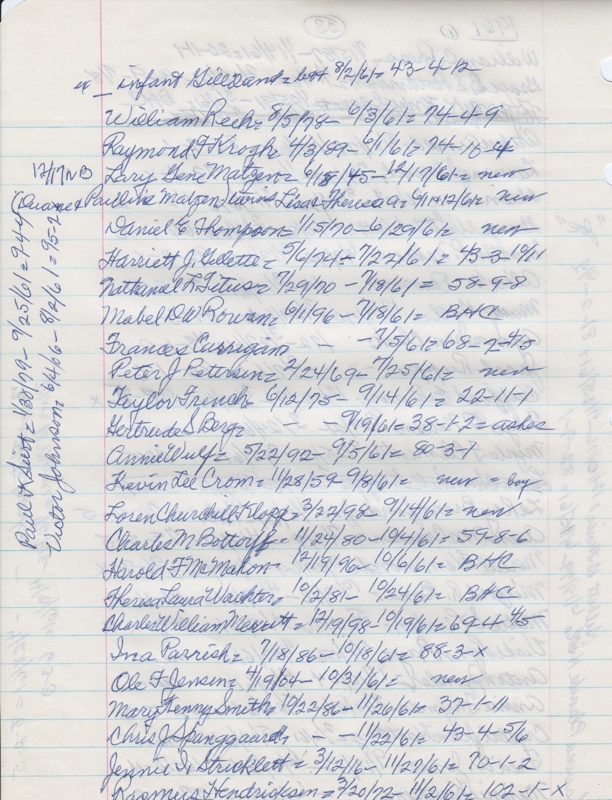 infant Gilliland = bst 8/2/61 = 43-4-12
William Rech = 8/5/78 - 6/3/61 = 74-4-9
Raymond F Krogh = 4/3/89 - 6/1/61 = 74-10-4
Lary Gene Matzen = 9/18/45 - 12/17/61 = new
(Duane & Pauline Matzen) twins Lisa & Theresa A = 9/14-12/61 = new
Daniel E Thompson = 11/5/70 - 6/29/61 = new
Harriett J. Gillette = 5/6/74 = 7/22/61 = 43-3-10/11
Nathaniel L Titus = 7/29/70 - 7/18/61 = 58-9-8
Mabel DW Rowan = 6/1/96 - 7/18/61 = BHC
Frances Currigan - - 7/5/61 = 68-2-4/5
Peter J Petersen = 2/24/69 - 7/25/61 = new
Taylor French = 6/12/75 - 9/14/61 = 22-11-1
Gertrude S Berg = - - 9/19/61 = 38-1-2 = ashes
Annie Wulf = 5/22/92 - 9/5/61 = 80-3-1
Kevin Lee Crom = 11/28/59 - 9/8/61 = new = boy
Loren Churchill Klopp = 3/22/98 - 9/14/61 = new
Charles M Bottorff = 11/24/80 - 10/4/61 = 59-8-6
Harold F McMahon = 12/19/96 - 10/6/61 = BHC
Theresa Laura Wachter = 10/2/81 - 10/24/61 = BHC
Charles William Merritt = 12/19/98 - 10/19/61 = 69-4 4/5
Ina Parrish = 7/18/86 - 10/18/61 = 88-3-X
Ole F Jensen = 4/19/04 - 10/31/61 = new
Mary Henry Smith = 10/22/86 - 11/26/61 = 37-1-11
Chris J Spanggaard = - - 11/22/61 = 43-4-5/6
Jennie I. Stricklett = 3/12/16 - 11/27/61 = 70-1-2
Rasmus Hendricksen = 3/20/72 - 11/2/61 = 102-1-X
12/17 NB
Paul K Siert = 1/30/79 - 9/25/61 = 94-4
Victor Johnson = 6/4/66 - 8/4/61 = 95-2